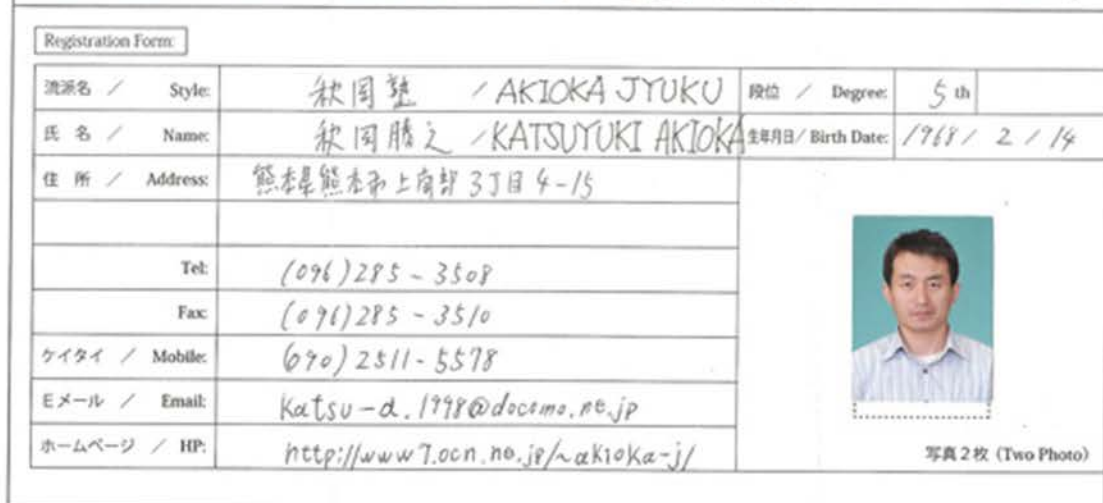 Registration Form:
流派名 / Style: 秋岡塾 / AKIOKA JYUKU 段位 / Degree: 5 th
氏 名 / Name: 秋岡勝之 / KATSUYUKI AKIOKA 生年月日 / Birth Date: 1968 / 2 / 14
住 所 / Address: 熊本県熊本市上南部3丁目4-15
Tel: (096)285-3508
Fax: (096)285-3510
ケイタイ / Mobile: (090)2511-5578
Eメール / Email: katsu-a.1998@docomo.ne.jp
ホームページ / HP: http://www7.ocn.ne.jp/~akioka-j/
写真2枚 (Two Photo)